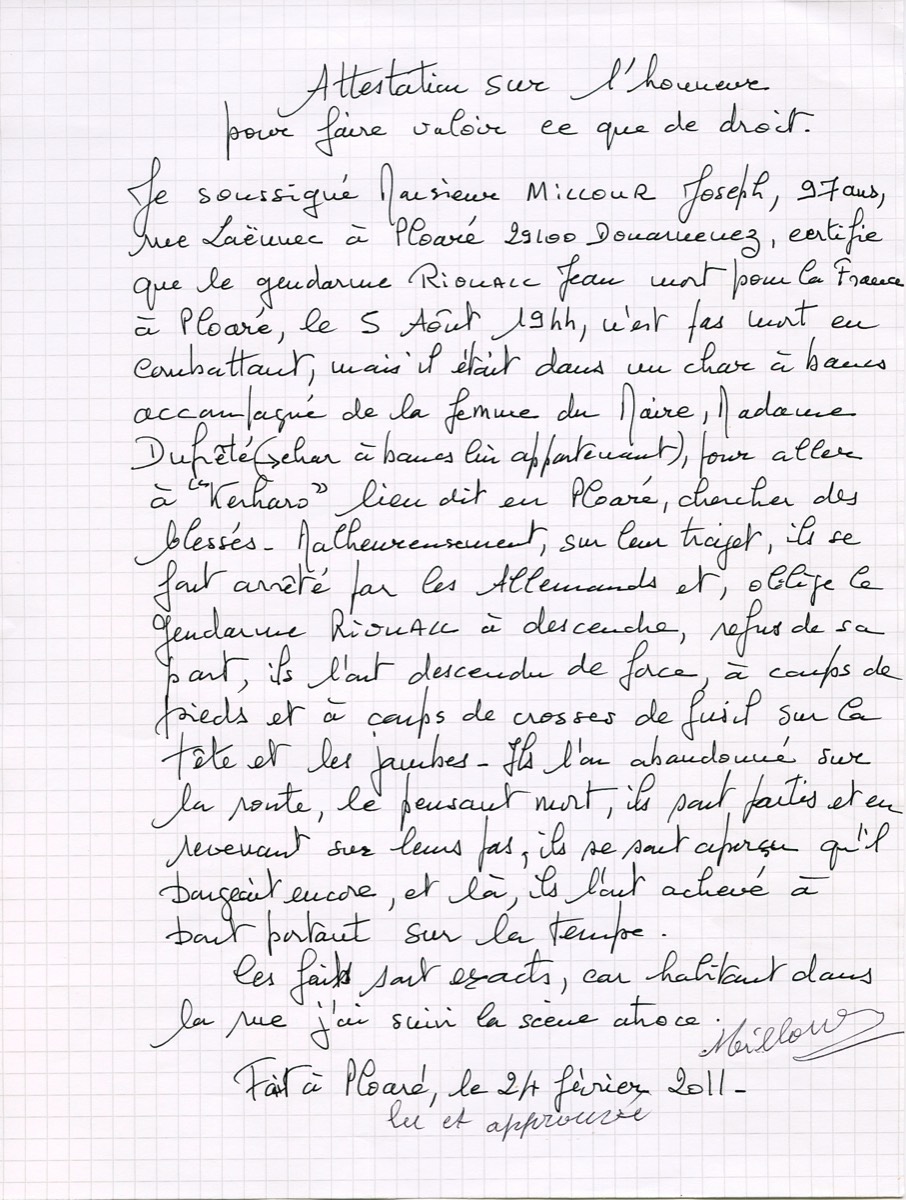 Attestation sur l'honneur
pour faire valoir ce que de droit.
Je soussigné Monsieur MILLOUR Joseph, 97 ans,
rue Laënnec à Ploaré 29100 Douarnenez, certifie
que le gendarme RIOUALL Jean mort pour la France
à Ploaré, le 5 Août 1944, n'est pas mort en
combattant, mais il était dans un char à bancs
accompagné de la femme du Maire, Madame
Dufrêté (char à bancs lui appartenant), pour aller
à "Kerharo" lieu dit en Ploaré, chercher des
blessés - Malheureusement, sur leur trajet, ils se
font arrêté par les Allemands et, oblige le
gendarme RIOUALL à descendre, refus de sa
part, ils l'ont descendu de force, à coups de
pieds et à coups de crosses de fusil sur la
tête et les jambes - Ils l'on abandonné sur
la route, le pensant mort, ils sont partis et en
revenant sur leurs pas, ils se sont aperçu qu'il
bougeait encore, et là, ils l'ont achevé à
bout portant sur la tempe.
Les faits sont exacts, car habitant dans
la rue j'ai suivi la scène atroce.
Millour
Fait à Ploaré, le 24 février 2011 -
lu et approuvé